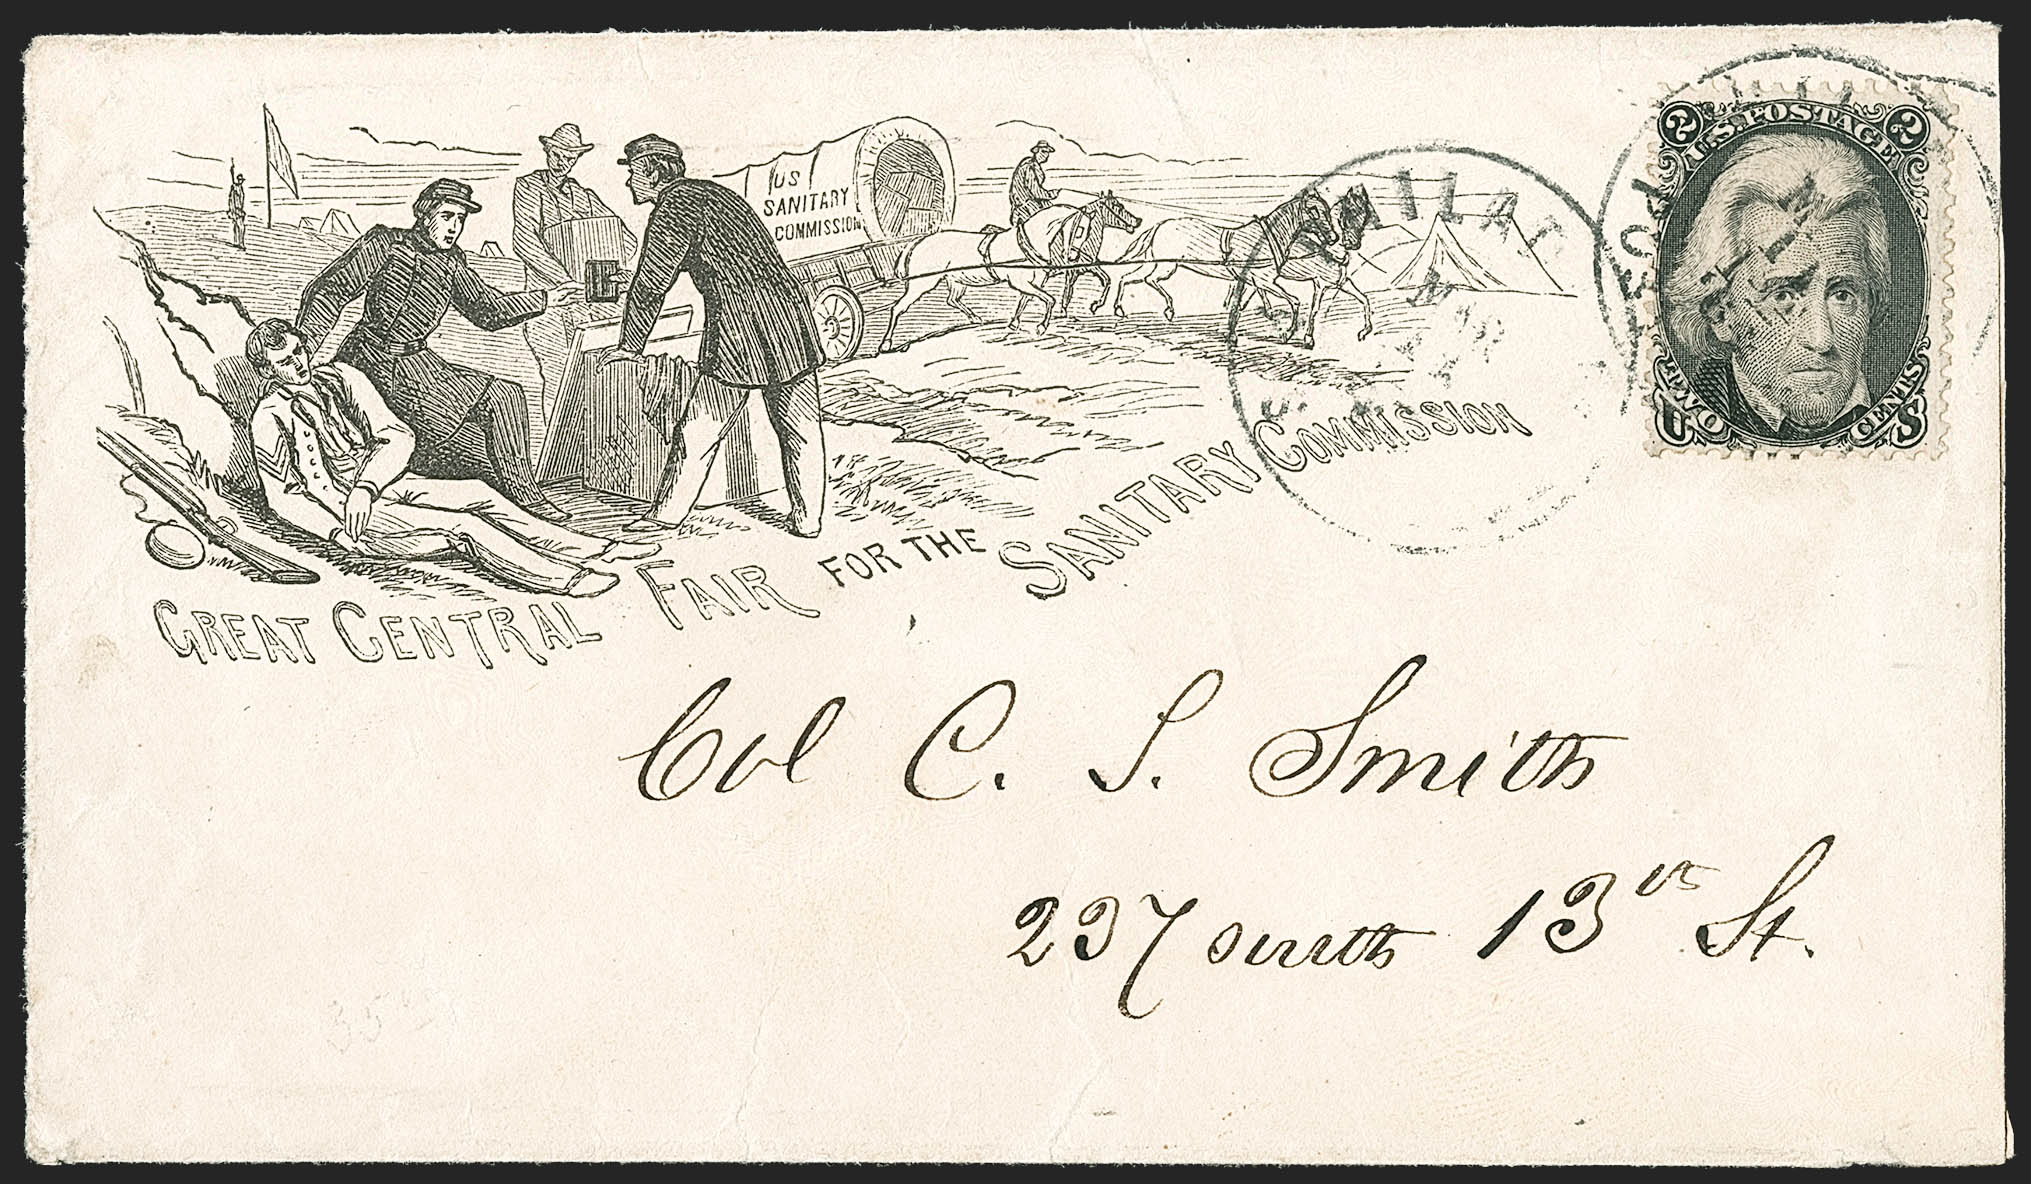 US
SANITARY
COMMISSION
GREAT CENTRAL FAIR FOR THE SANITARY COMMISSION
2 U.S. POSTAGE 2
U TWO CENTS S
Col C. S. Smith
237 south 13th St.